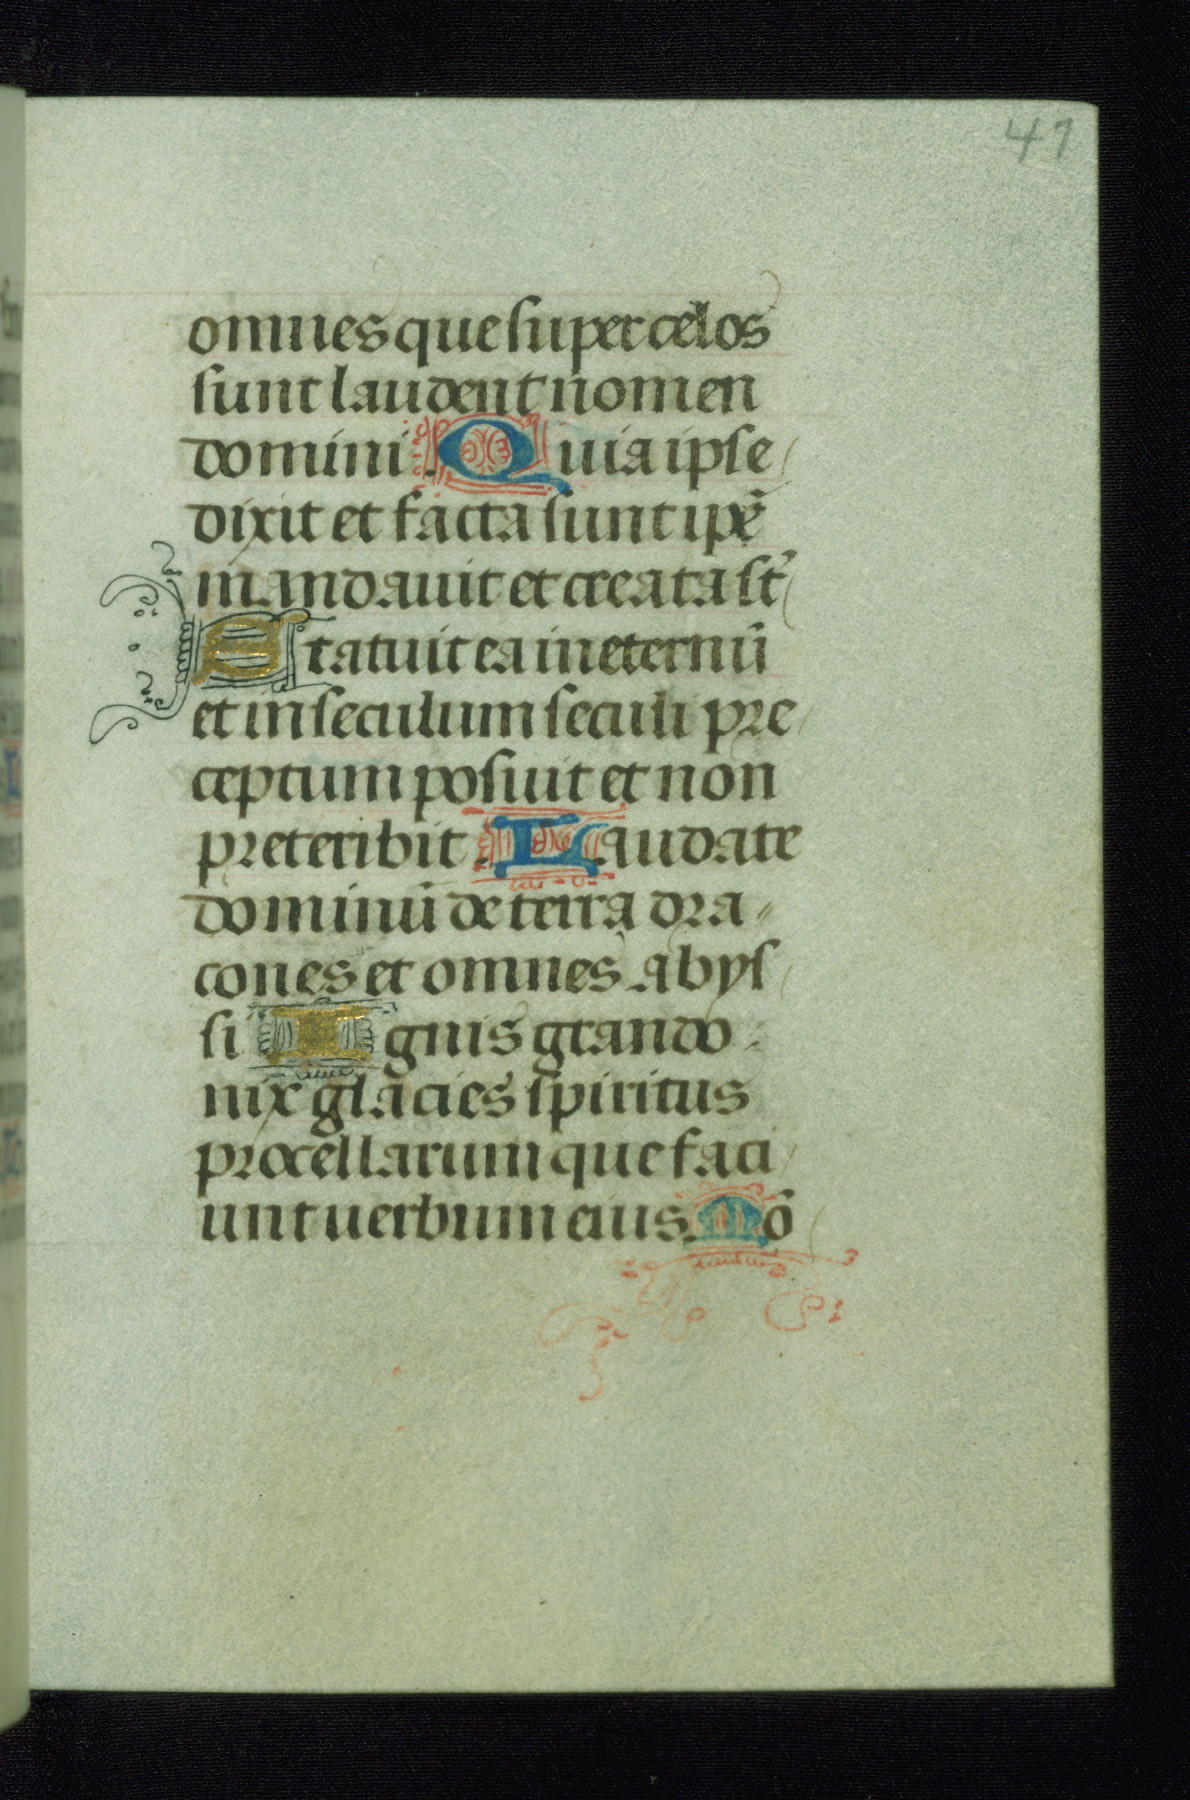 41
omnes que super celos
sunt laudent nomen
domini Quia ipse
dixit et facta sunt ip̃e
mandauit et creata st̃
Statuit ea in eternũ
et in seculum seculi pre
ceptum posuit et non
preteribit. Laudate
dominũ de terra dra
cones et omnes abys
si Ignis grando
nix glacies spiritus
procellarum que faci
unt uerbum eius. Mõ